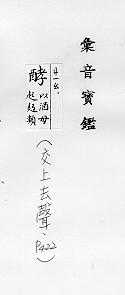 彙音寶鑑
酵
以酒母
起麵類
(交上去聲、P422)